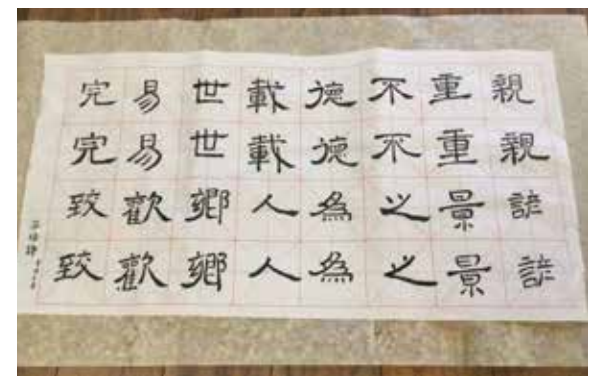 親親諺諺
重重景景
不不之之
德德為為
載載人人
世世鄉鄉
易易歡歡
完完致致